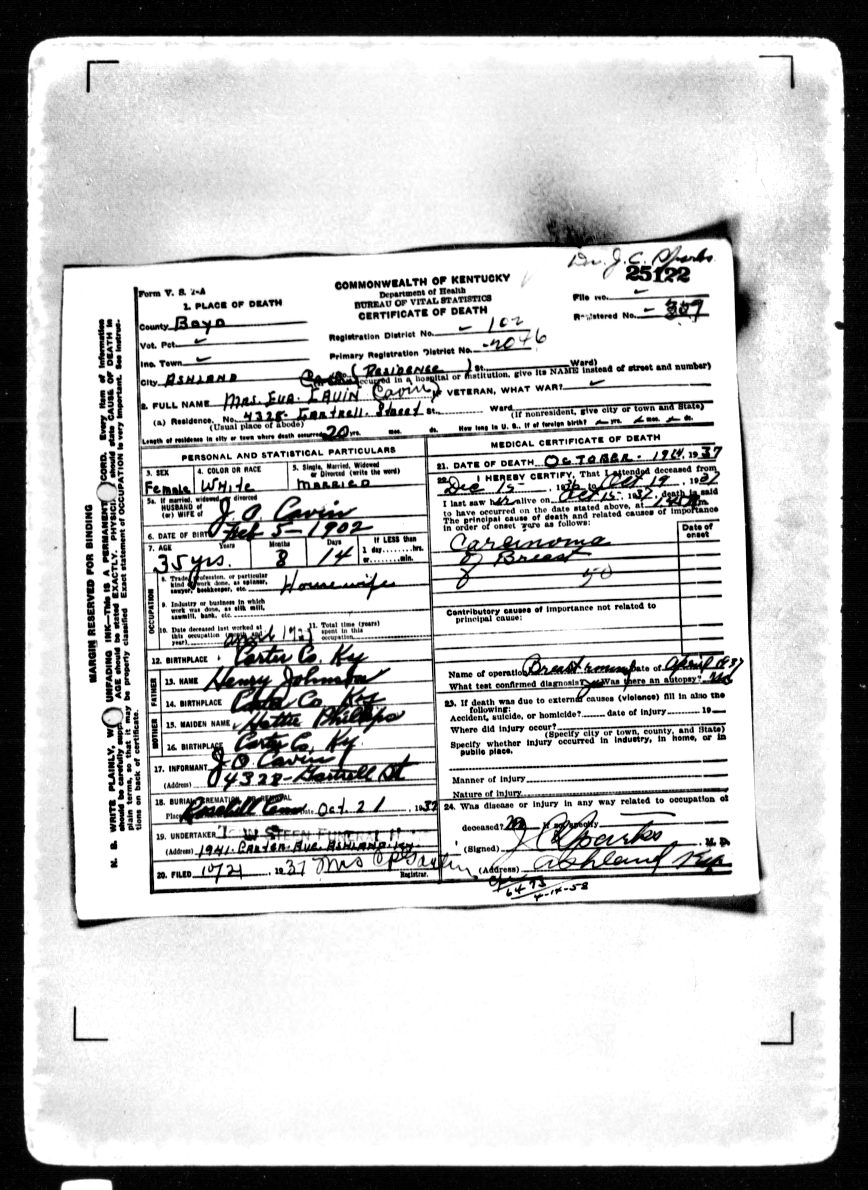 Dr. J. C. Sparks
25122
COMMONWEALTH OF KENTUCKY
Department of Health
BUREAU OF VITAL STATISTICS
CERTIFICATE OF DEATH
Form V. S. 1-A
1. PLACE OF DEATH
County Boyd
Vot. Pct.
Inc. Town
City ASHLAND
File No.
Registered No. 309
Registration District No. 102
Primary Registration District No. 2046
(Residence) St. Ward)
occurred in a hospital or institution, give its NAME instead of street and number)
2. FULL NAME Mrs. Eva. Cavin VETERAN, WHAT WAR?
(a) Residence. No. 4328- Gartrell. Street St., Ward
(Usual place of abode) (If nonresident, give city or town and State)
Length of residence in city or town where death occurred 20 yrs. mos. ds. How long in U. S., if of foreign birth? yrs. mos. ds.
PERSONAL AND STATISTICAL PARTICULARS
3. SEX 4. COLOR OR RACE 5. Single, Married, Widowed
or Divorced (write the word)
Female White MARRIED
5a. If married, widowed divorced
HUSBAND of
(or) WIFE of J O Cavin
6. DATE OF BIRTH Feb 5-1902
7. AGE Years Months Days If LESS than
1 day hrs.
or min.
35 yrs. 8 14
OCCUPATION
8. Trade, profession, or particular
kind of work done, as spinner,
sawyer, bookkeeper, etc. Housewife
9. Industry or business in which
work was done, as silk mill,
sawmill, bank, etc.
10. Date deceased last worked at
this occupation (month and
year)
11. Total time (years)
spent in this
occupation
12. BIRTHPLACE Carter Co. Ky
FATHER
13. NAME Henry Johnson
14. BIRTHPLACE Carter Co. Ky
MOTHER
15. MAIDEN NAME Hattie Phillips
16. BIRTHPLACE Carter Co. Ky.
17. INFORMANT J O Cavin
(Address) 4328- Gartrell St
18. BURIAL CREMATION REMOVAL
Place Rosehill Cem Date Oct. 21, 1937
19. UNDERTAKER Steen Funeral H
(Address) 1941- Carter Ave. Ashland, Ky.
20. FILED 10/21, 1937 Mrs
Registrar.
MEDICAL CERTIFICATE OF DEATH
21. DATE OF DEATH October. 19th, 1937
22. I HEREBY CERTIFY, That I attended deceased from
Dec 15, 1936 to Oct 19, 1937
I last saw alive on Oct 15, 1937, death is said
to have occurred on the date stated above, at m.
The principal cause of death and related causes of importance
in order of onset were as follows:
Date of
onset
Carcinoma
of Breast
50
Contributory causes of importance not related to
principal cause:
Name of operation Breast Date of April 1937
What test confirmed diagnosis? Was there an autopsy? No
23. If death was due to external causes (violence) fill in also the
following:
Accident, suicide, or homicide? date of injury 19
Where did injury occur?
(Specify city or town, county, and State)
Specify whether injury occurred in industry, in home, or in
public place.
Manner of injury
Nature of injury
24. Was disease or injury in any way related to occupation of
deceased? No If so, specify
(Signed) J C Sparks M. D.
(Address) Ashland Ky
6473
4-14-58
MARGIN RESERVED FOR BINDING